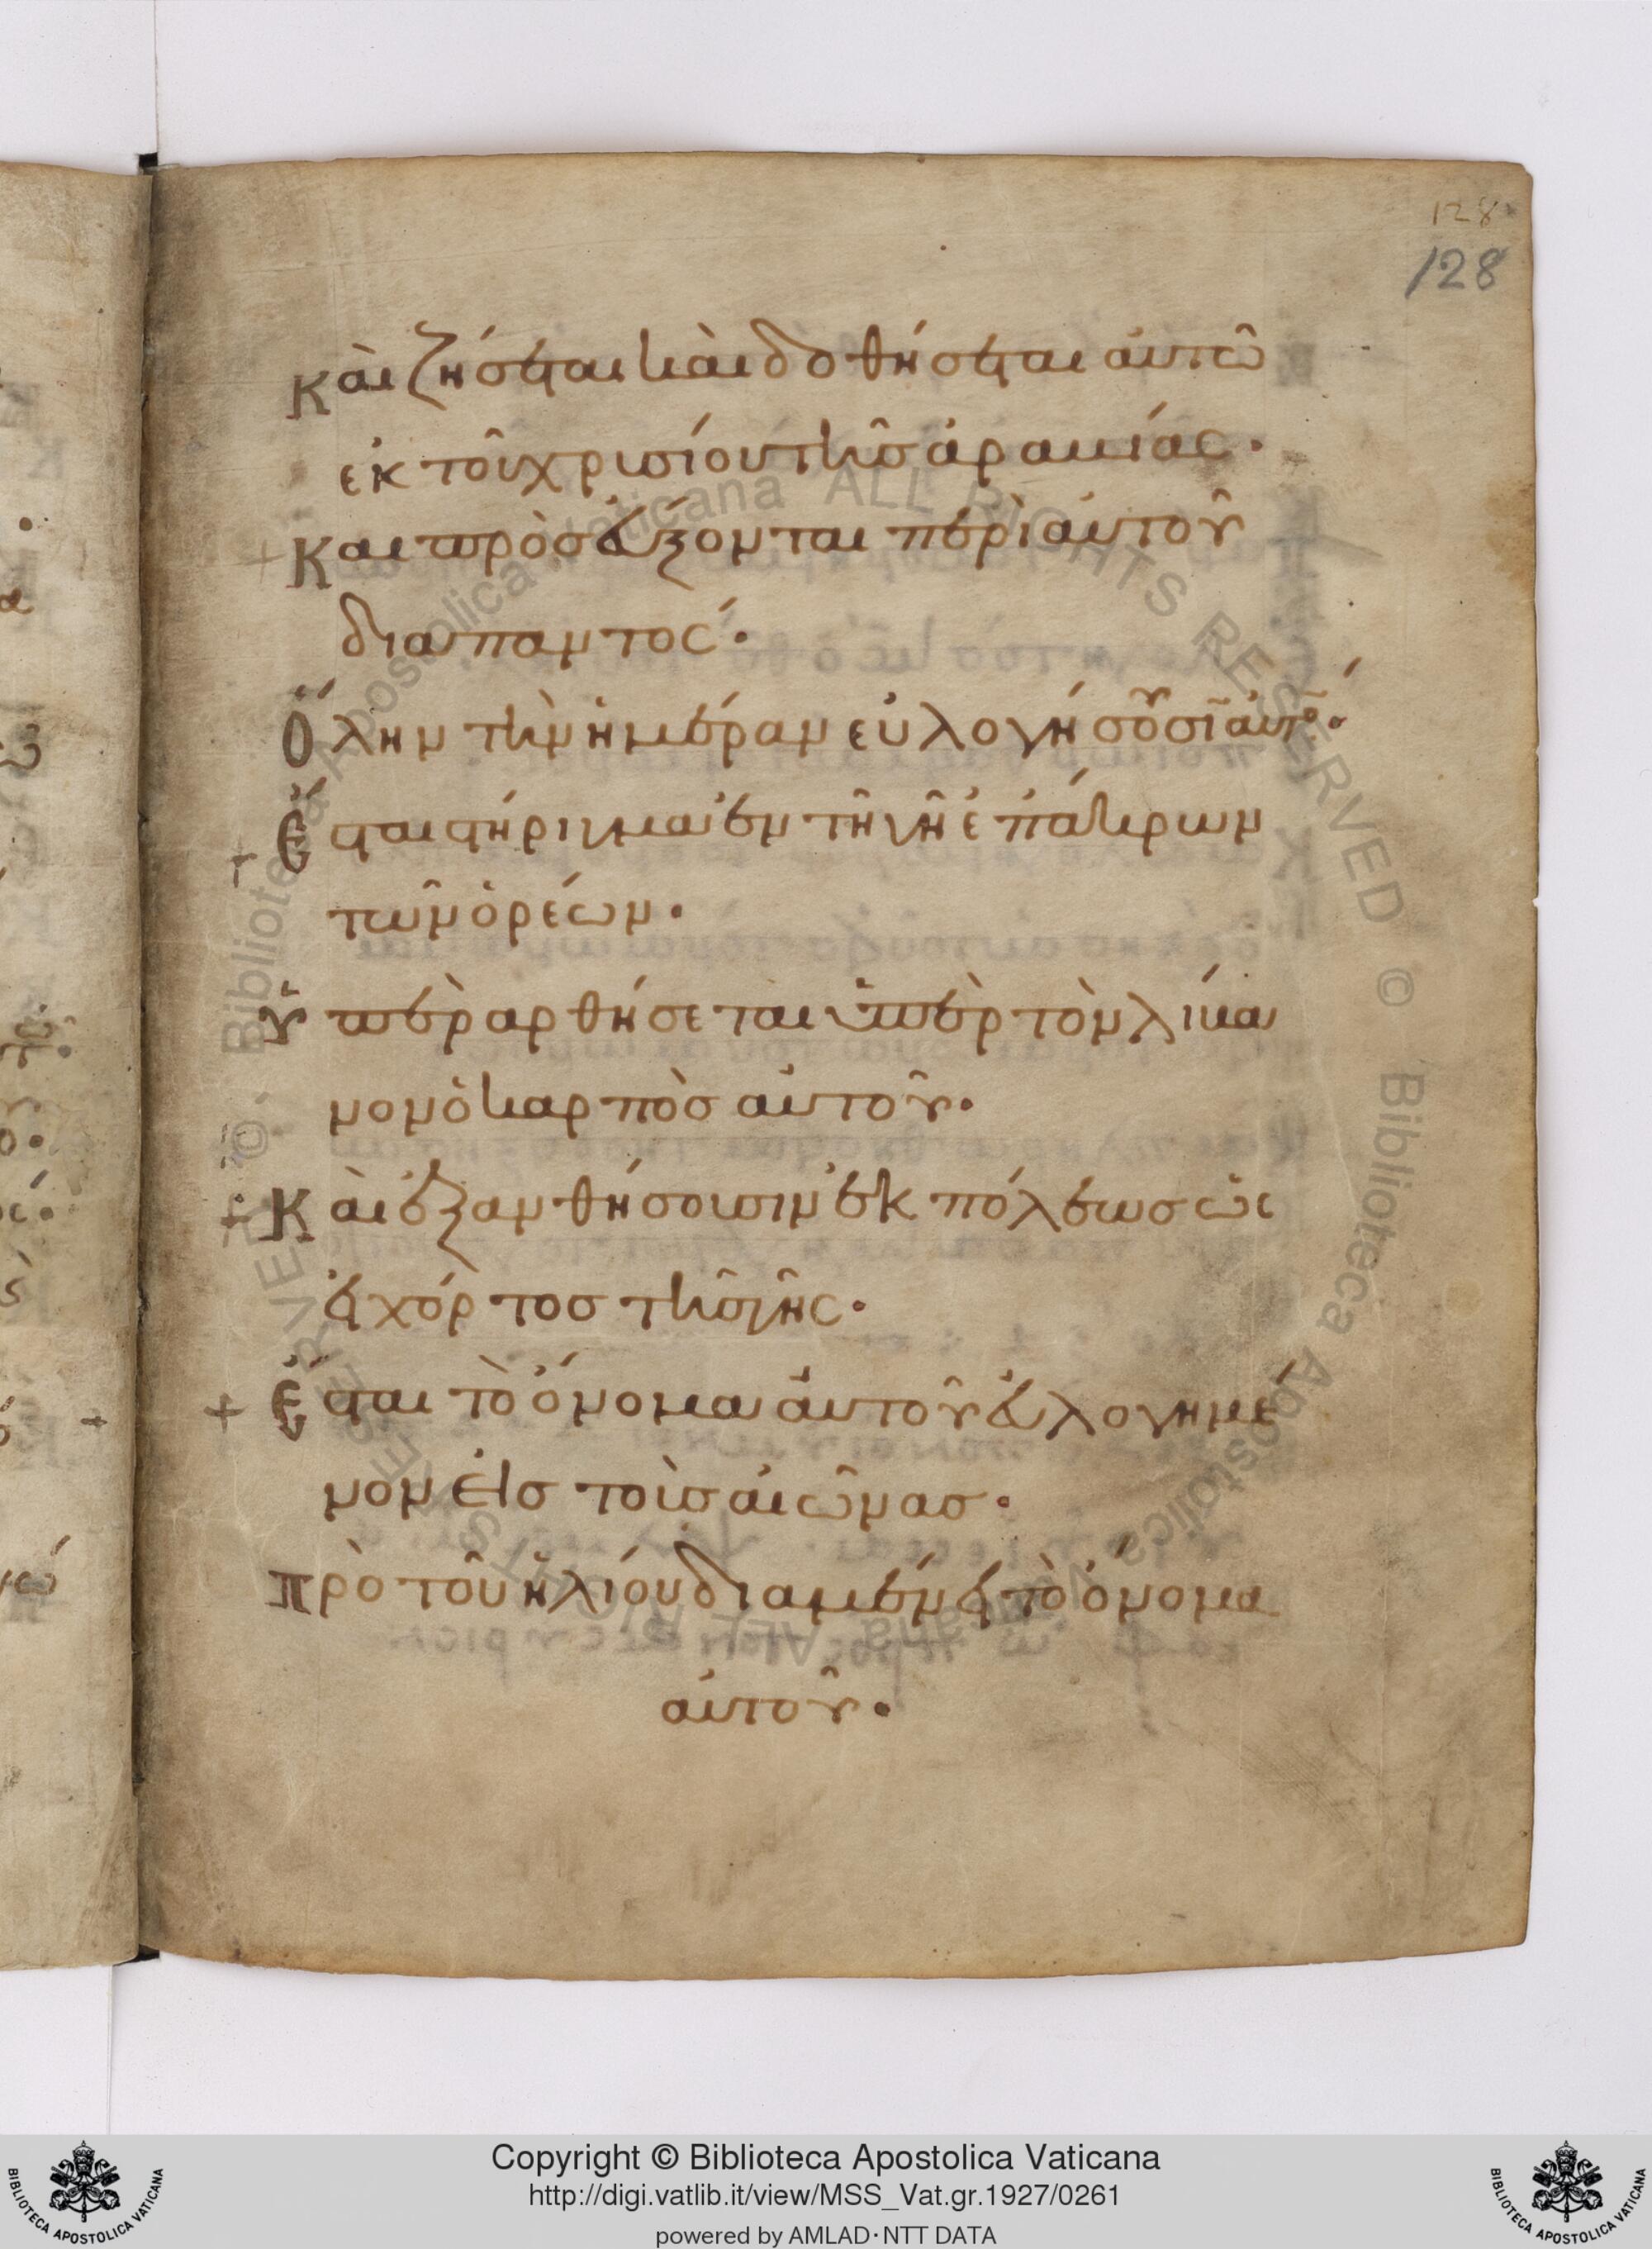 128
128
Καὶ ζήσεται καὶ δοθήσεται αὐτῶ
ἐκ τοῦ χρυσίου τῆσ ἀραυίας·
Και προσεύξονται περὶ αὐτοῦ
διαπαντός·
Ὅλην τὴν ἡμέραν εὐλογήσουσῖ αὐτό·
Ἔσται στήριγμα ἐν τῆ γῆ ἐπάκρων
τῶν ὀρέων·
Ὑπεραρθήσεται ὑπὲρ τὸν λίβα
νον ὁ καρπὸσ αὐτοῦ·
Καὶ ἐξανθήσουσιν ἐκ πόλεωσ ὡς
εἰ χόρτοσ τῆσ γῆς·
Ἔσται τὸ ὄνομα αὐτοῦ εὐλογημέ
νον εἰσ τοὺσ αἰῶνασ·
Πρὸ τοῦ ἡλίου διαμένει τὸ ὄνομα
αὐτοῦ·
Copyright © Biblioteca Apostolica Vaticana
http://digi.vatlib.it/view/MSS_Vat.gr.1927/0261
powered by AMLAD·NTT DATA
BIBLIOTECA APOSTOLICA VATICANA
BIBLIOTECA APOSTOLICA VATICANA